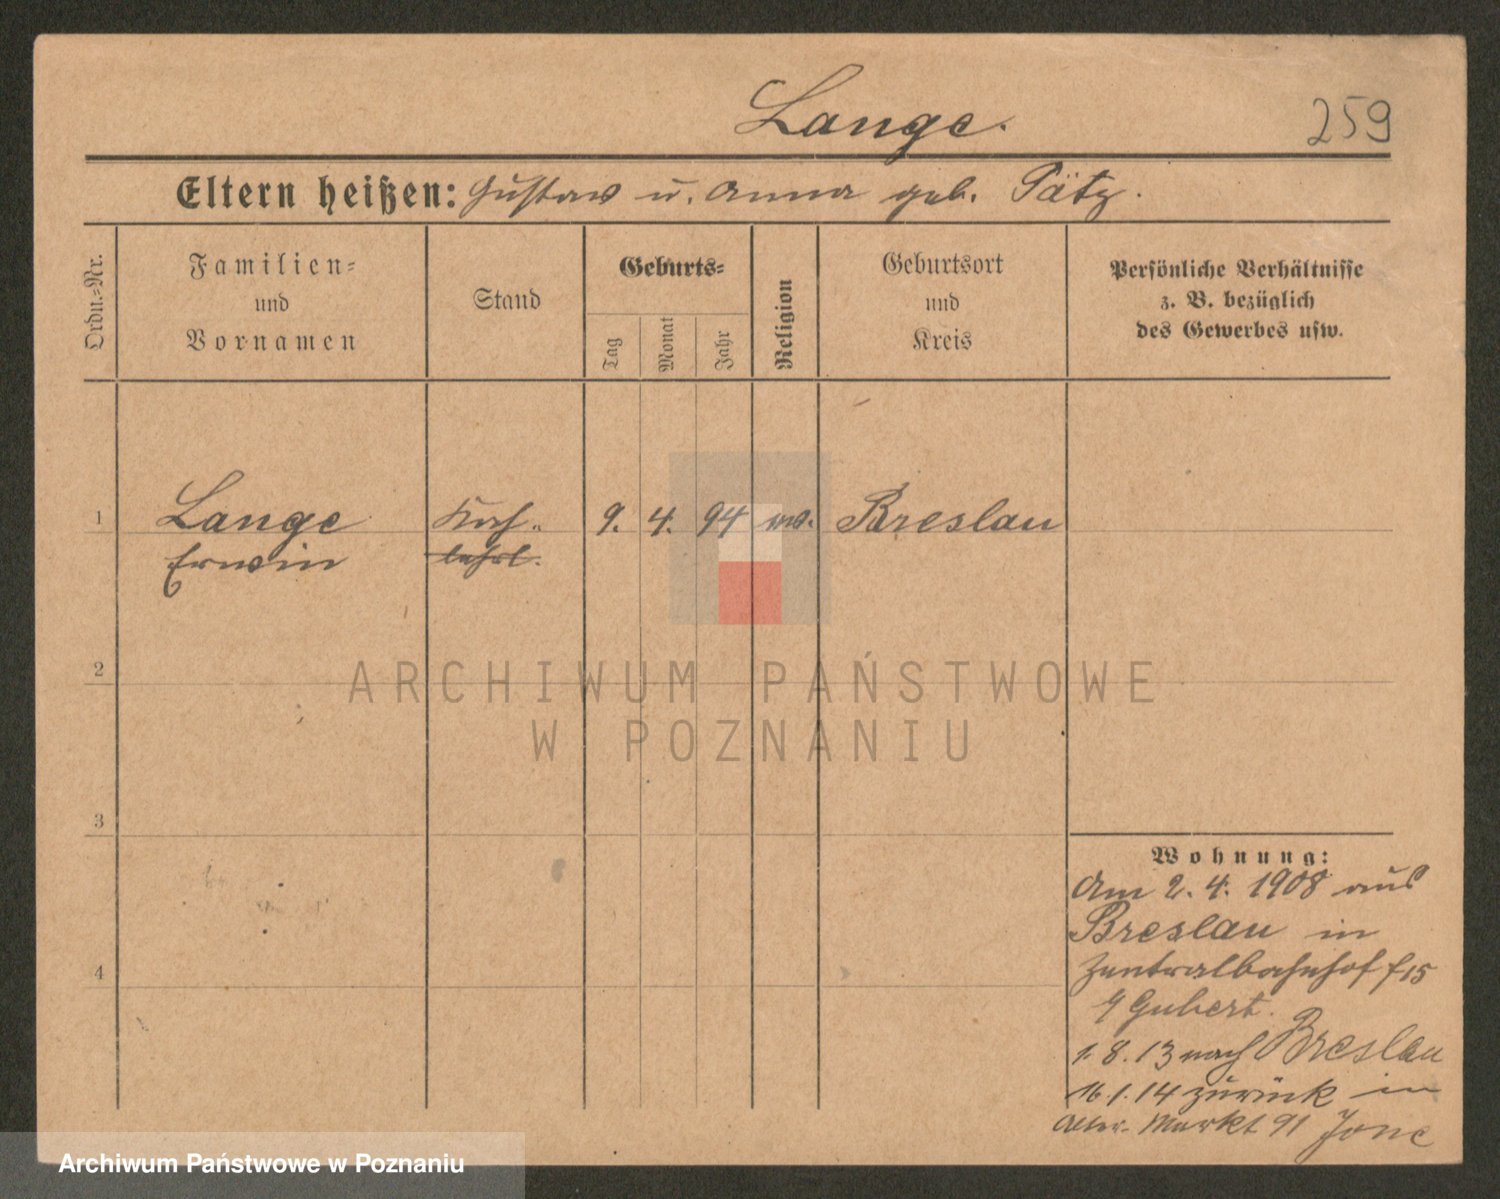 Lange.
259
Eltern heißen: Gustav u. Anna geb. Pätz.
Ordn.-Nr.
Familien-
und
Vornamen
Stand
Geburts-
Tag
Monat
Jahr
Religion
Geburtsort
und
Kreis
Persönliche Verhältnisse
z. B. bezüglich
des Gewerbes usw.
1 Lange Koch- 9. 4. 94 Breslau
Erwin lehrl.
2
ARCHIWUM PAŃSTWOWE
W POZNANIU
3
4
Wohnung:
Am 2. 4. 1908 aus
Breslau in
Zentralbahnhof 15
Gubert.
1. 8. 13 nach Breslau
16.1.14 zurück in
Alter Markt 91
Archiwum Państwowe w Poznaniu